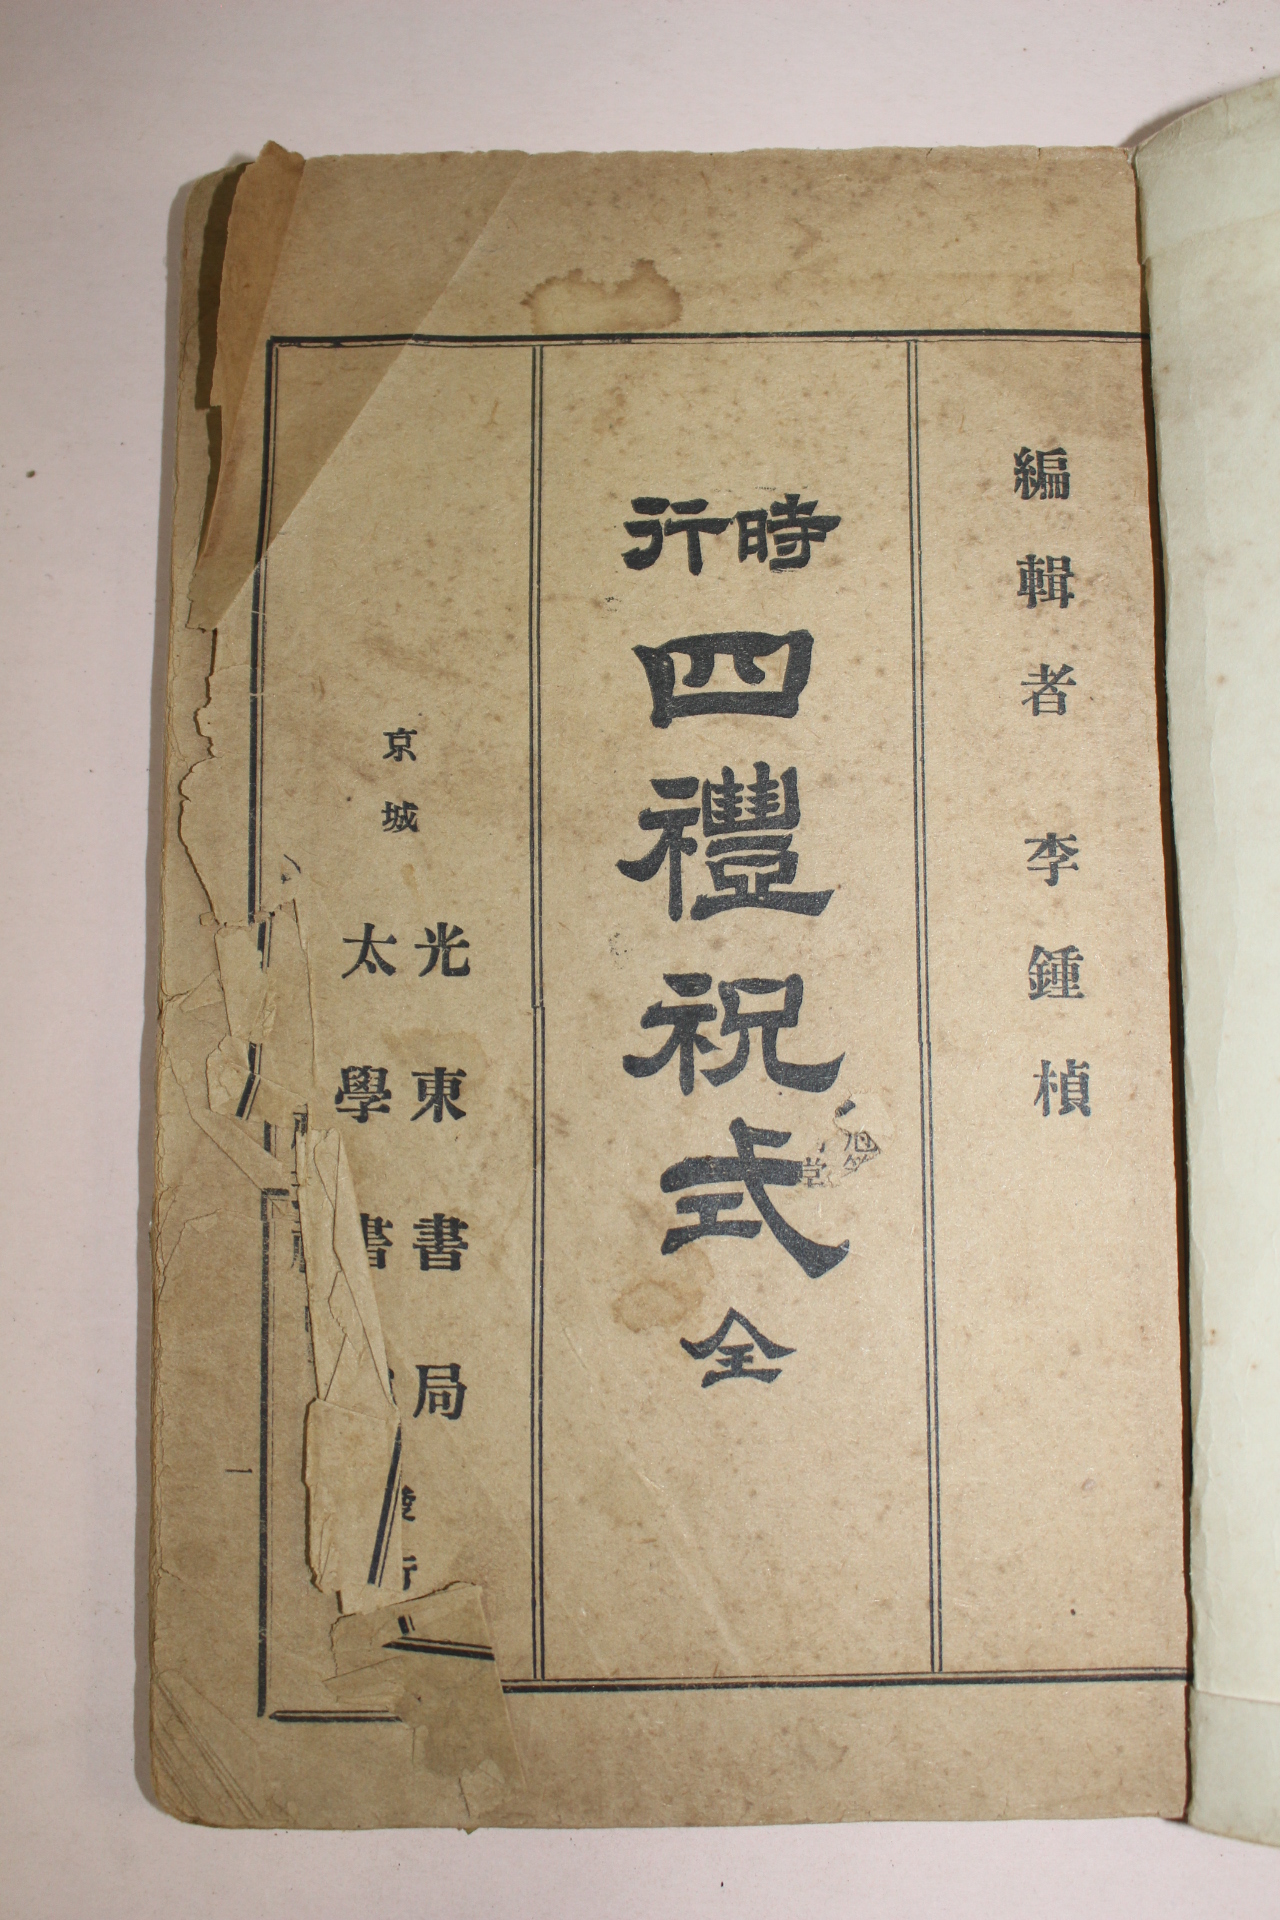 編輯者 李鍾楨
時行 四禮祝式 全
京城
光東書局
太學書
行
一